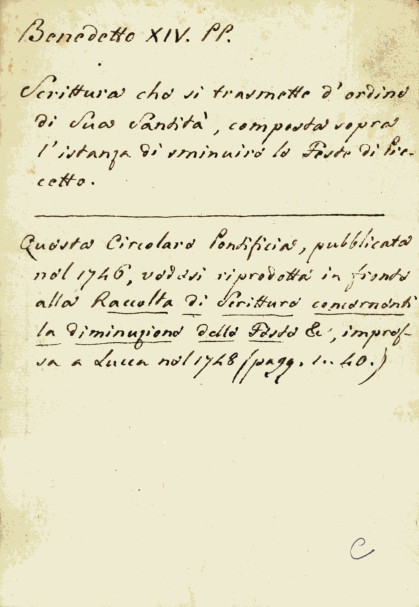 Benedetto XIV. PP.
Scrittura che si trasmette d'ordine
di Sua Santità, composta sopra
l'istanza di sminuire le Feste di Pre-
cetto.
Questa Circolare Pontificia, pubblicata
nel 1746, vedesi riprodotta in fronte
alla Raccolta di Scritture concernenti
la diminuzione delle Feste &, impres-
sa a Lucca nel 1748 (pagg. 1.. 40.)
C